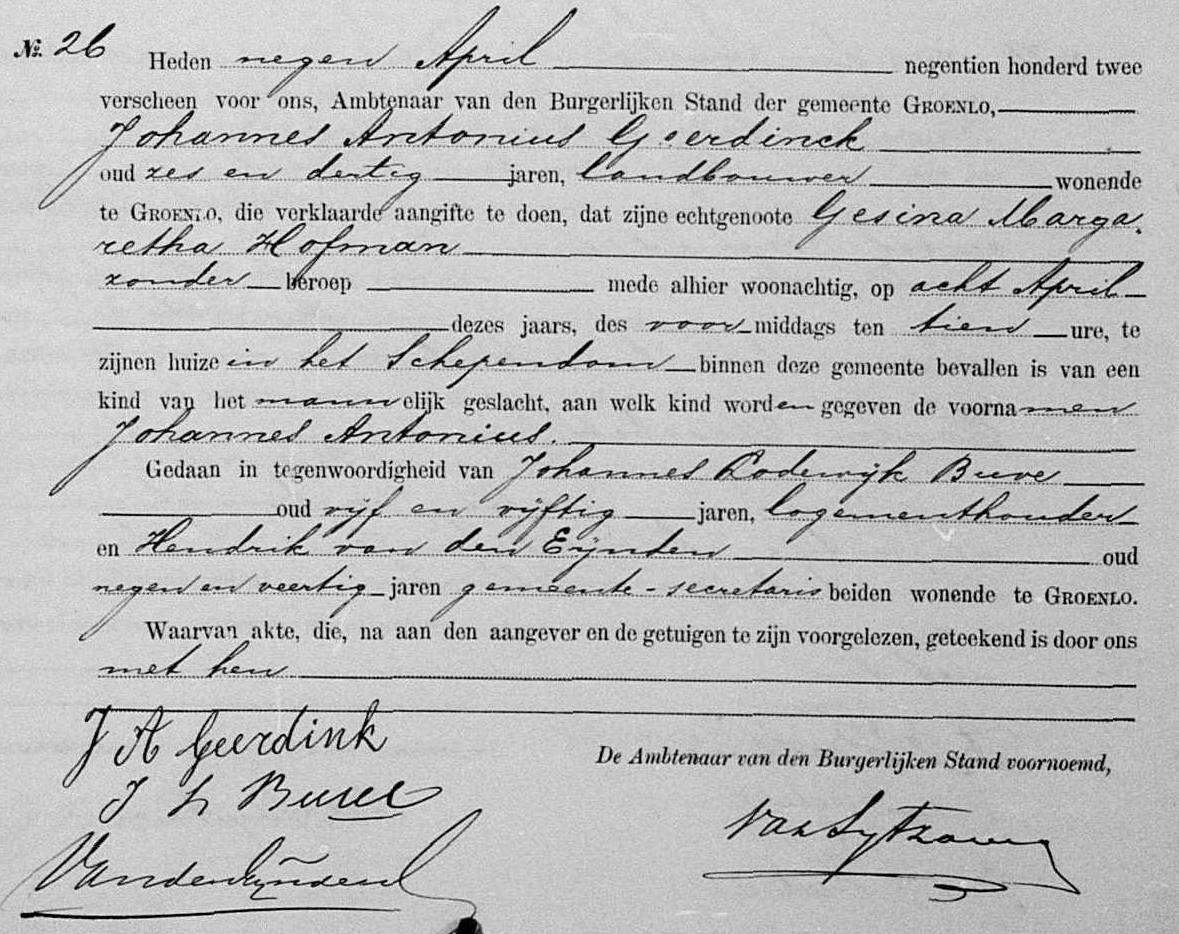 №. 26 Heden negen April negentien honderd twee
verscheen voor ons, Ambtenaar van den Burgerlijken Stand der gemeente GROENLO,
Johannes Antonius Geerdinck
oud zes en dertig jaren, landbouwer wonende
te GROENLO, die verklaarde aangifte te doen, dat zijne echtgenoote Gesina Marga-
retha Hofman
zonder beroep mede alhier woonachtig, op acht April
dezes jaars, des voor middags ten tien ure, te
zijnen huize in het Schependom binnen deze gemeente bevallen is van een
kind van het mannelijk geslacht, aan welk kind worden gegeven de voornamen
Johannes Antonius.
Gedaan in tegenwoordigheid van Johannes Lodewijk Buve
oud vijf en vijftig jaren, logementhouder
en Hendrik van den Eijnden oud
negen en veertig jaren gemeente-secretaris beiden wonende te GROENLO.
Waarvan akte, die, na aan den aangever en de getuigen te zijn voorgelezen, geteekend is door ons
met hen
J A Geerdink
De Ambtenaar van den Burgerlijken Stand voornoemd,
J L
VandenEijnden